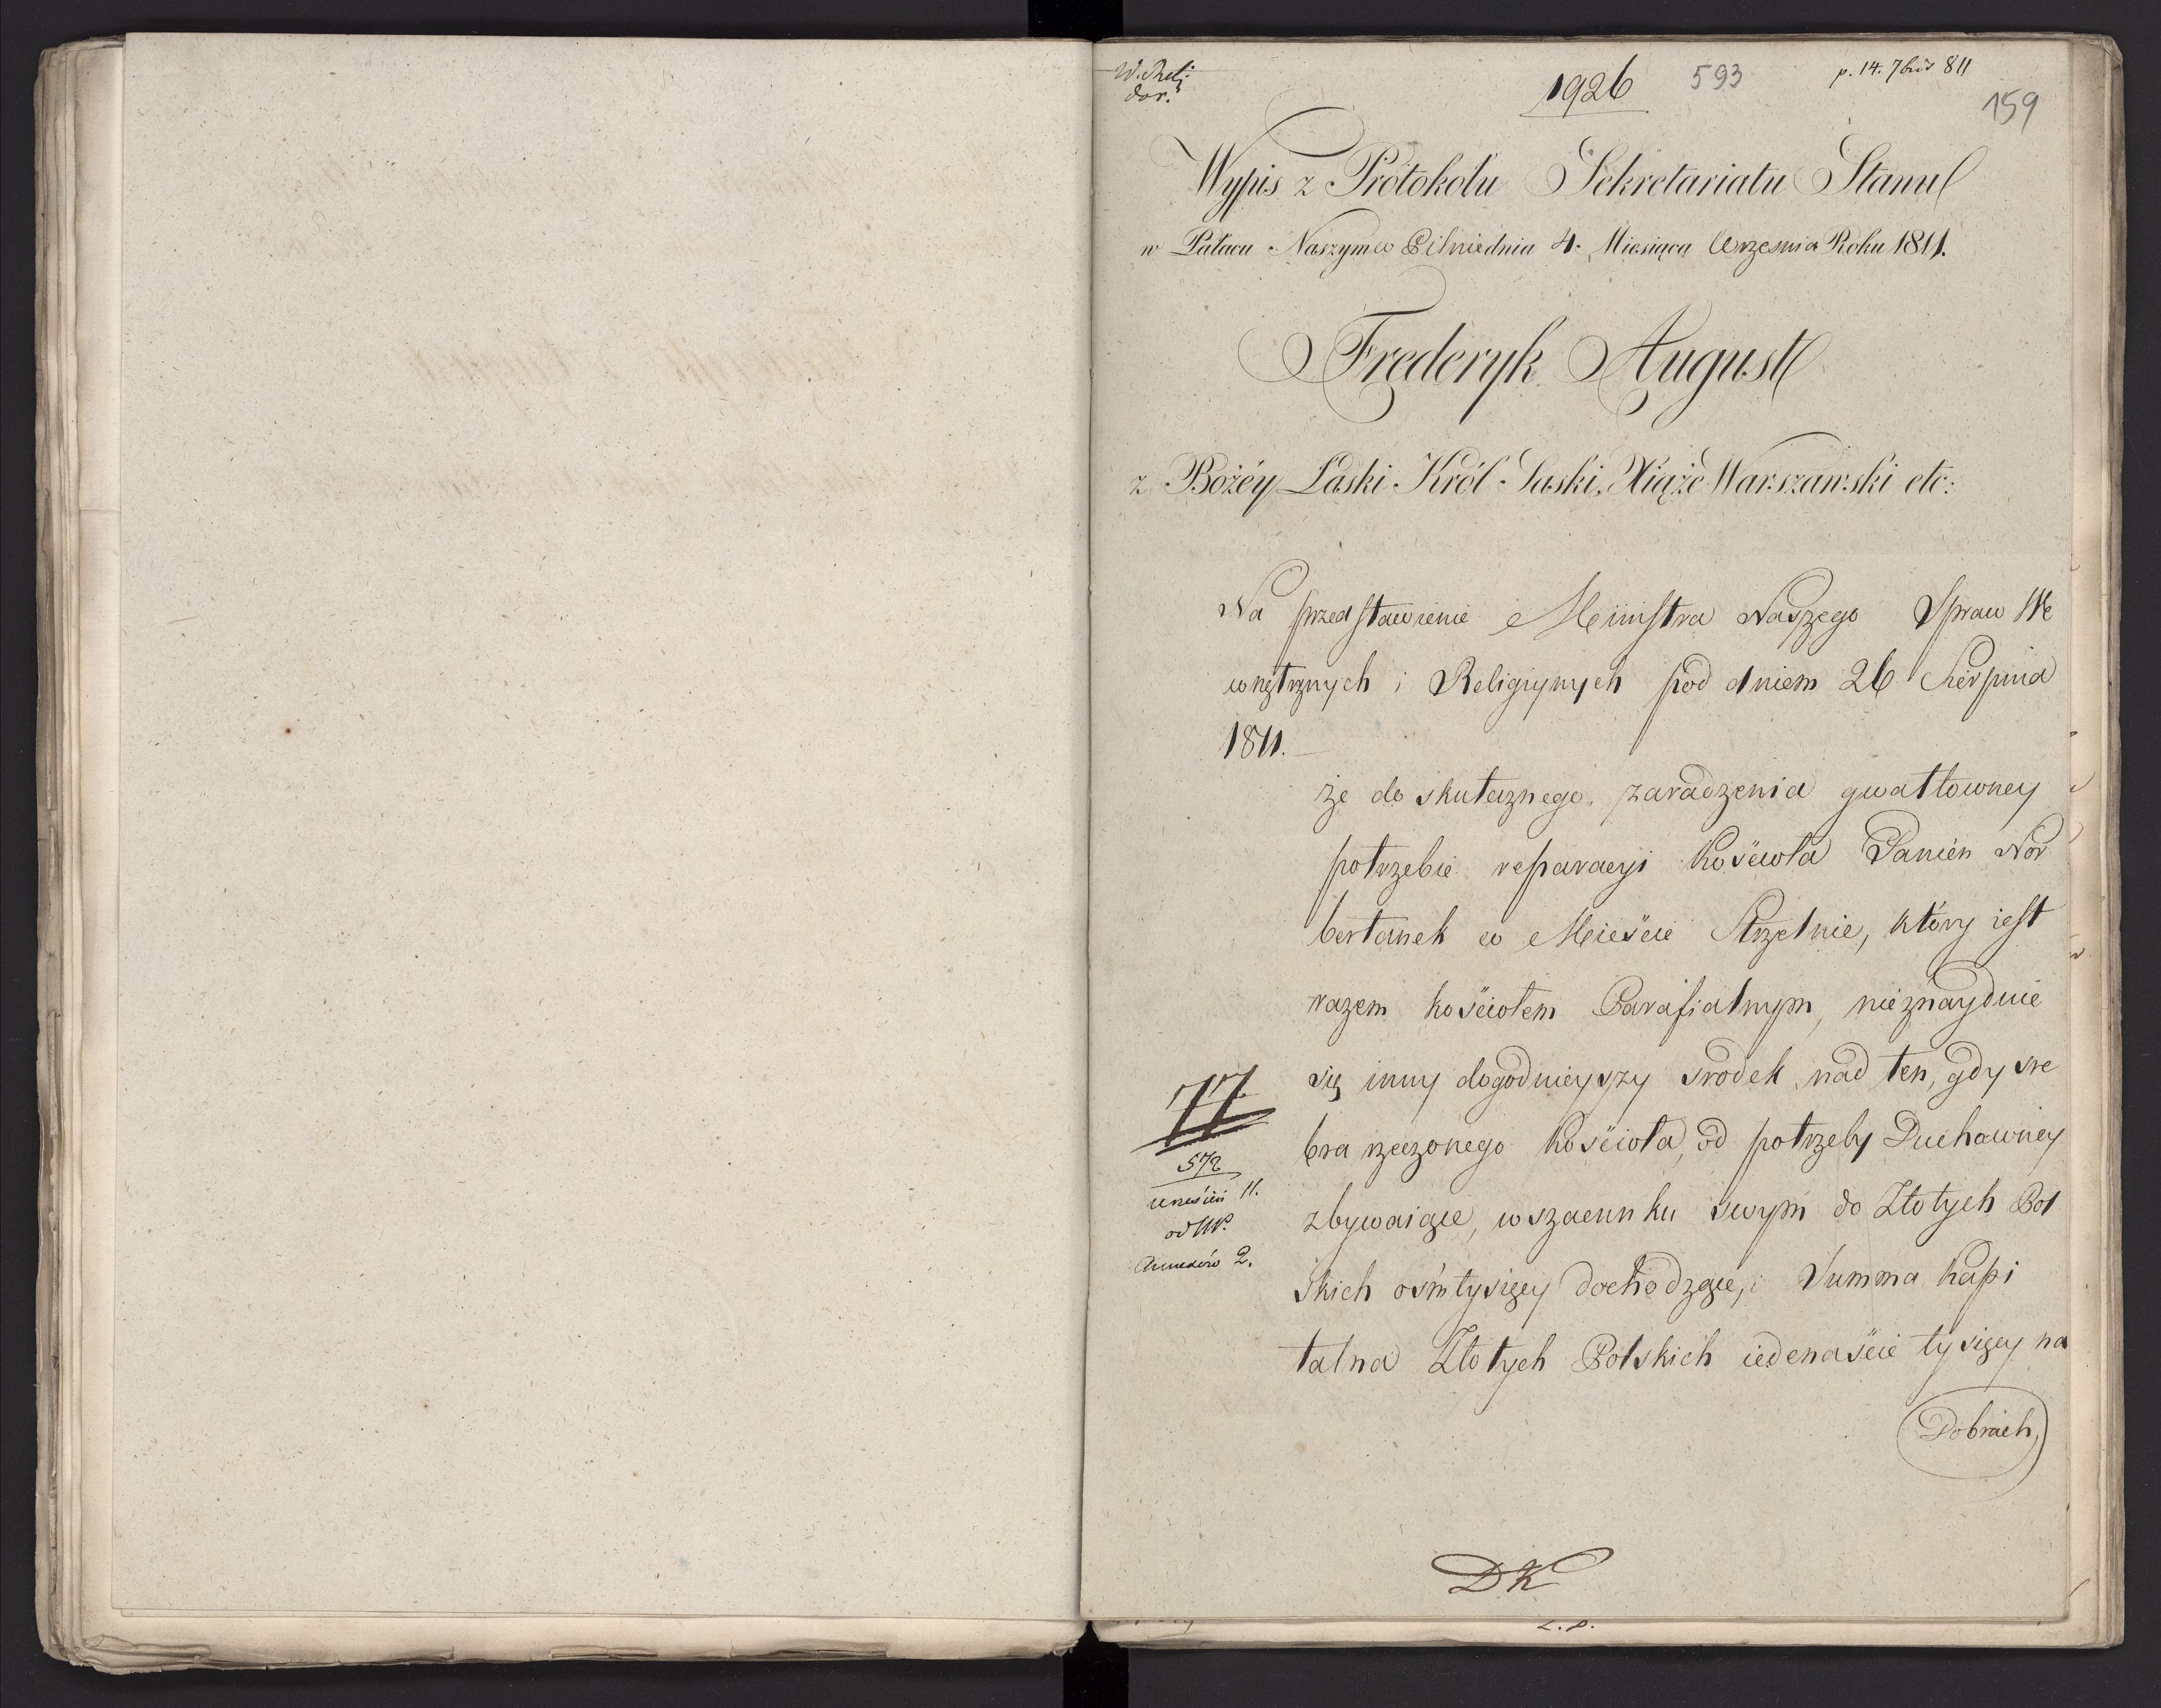 W. Reli:
dor.
1926
593
p. 14. 7bris 811
159
Wypis z Protokołu Sekretariatu Stanu
w Pałacu Naszym w Pilnie dnia 4. Miesiąca Września Roku 1811.
Frederyk August
z Bożéy Łaski Król Saski, Xiąże Warszawski etc:
Na przedstawienie Ministra Naszego Spraw We
wnętrznych i Religiynych pod dniem 26 Sierpnia
1811.
że do skutecznego zaradzenia gwałtowney
potrzebie reparacyi Kościoła Panien Nor
bertanek w Mieście Strzelnie, który iest
razem kościołem Parafialnym, nieznayduie
się inny dogodnieyszy srodek nad ten, gdy sre
bra rzeczonego Kościoła, od potrzeby Duchowney
zbywaiące, w szacunku swym do Złotych Pol
skich ośmtysięcy dochodzące, i Summa Kapi
talna Złotych Polskich iedenaście tysięcy na
Dobrach,
77.
572
wrześń 11.
od W.
Annexów 2.
DK
L.S.